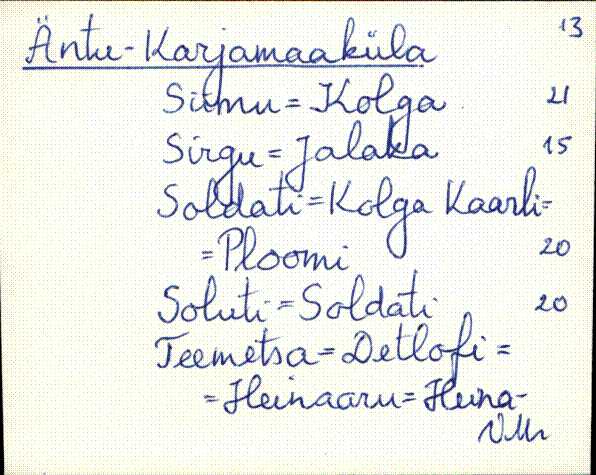 Äntu-Karjamaaküla 13
Siimu = Kolga 21
Sirgu = Jalaka 15
Soldati = Kolga Kaarli =
= Ploomi 20
Soluti = Soldati 20
Teemetsa = Detlofi =
= Heinaaru =